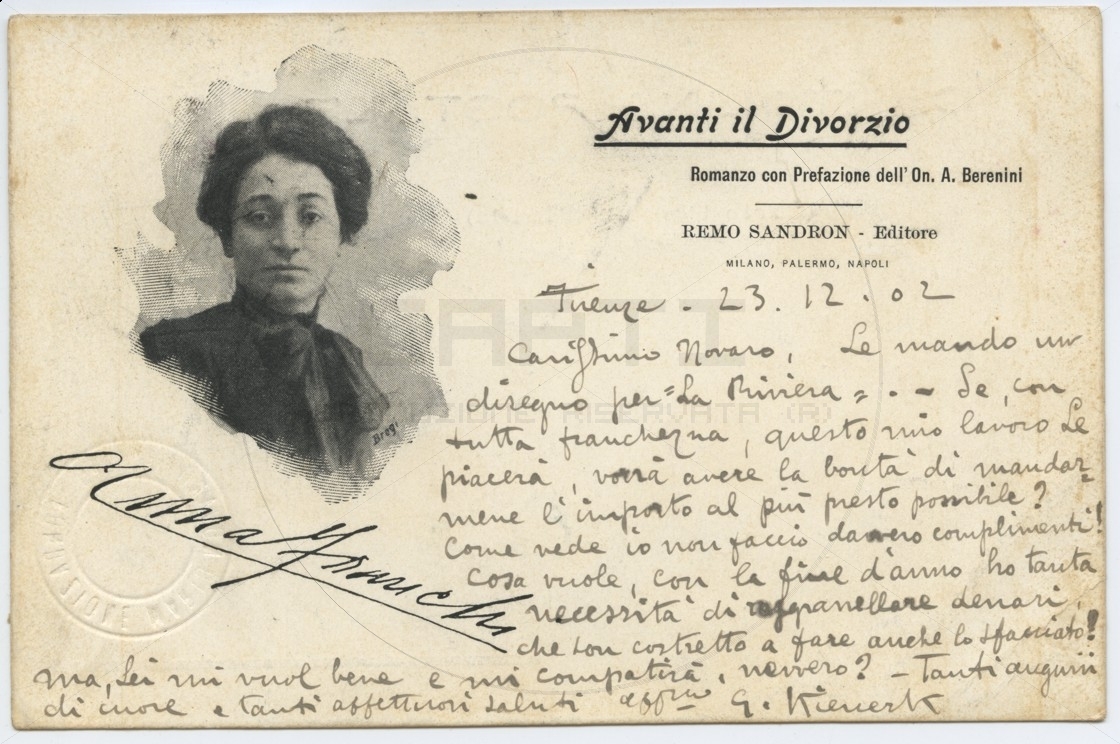 Avanti il Divorzio
Romanzo con Prefazione dell' On. A. Berenini
REMO SANDRON - Editore
MILANO, PALERMO, NAPOLI
Firenze - 23. 12. 02
Carissimo Novaro, Le mando un
disegno per "La Riviera". - Se, con
tutta franchezza, questo mio lavoro Le
piacerà, vorrà avere la bontà di mandar-
mene l'importo al più presto possibile?
Come vede io non faccio davvero complimenti!
Cosa vuole, con la fine d'anno ho tanta
necessità di denari,
che son costretto a fare anche lo sfacciato!
ma, Lei mi vuol bene e mi compatirà, nevvero? - Tanti augurii
di cuore e tanti affettuosi saluti aff.mo G. Kienerk
Brogi
Anna Franchi